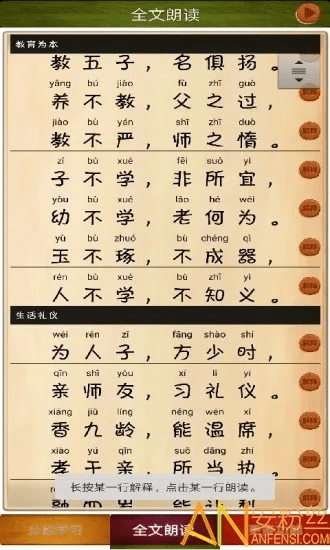 全文朗读
教育为本
教五子，名俱扬。
yǎng bú jiào fù zhī guò
养不教，父之过，
jiào bù yán shī zhī duò
教不严，师之惰。
zǐ bù xué fēi suǒ yí
子不学，非所宜，
yòu bù xué lǎo hé wéi
幼不学，老何为。
yù bù zhuó bù chéng qì
玉不琢，不成器，
rén bù xué bù zhī yì
人不学，不知义。
生活礼仪
wéi rén zǐ fāng shào shí
为人子，方少时，
qīn shī yǒu xí lǐ yí
亲师友，习礼仪。
xiāng jiǔ líng néng wēn xí
香九龄，能温席，
xiào yú qīn suǒ dāng zhí
孝于亲，所当执。
长按某一行解释，点击某一行朗读。
全文朗读
安粉丝
ANFENSI.COM